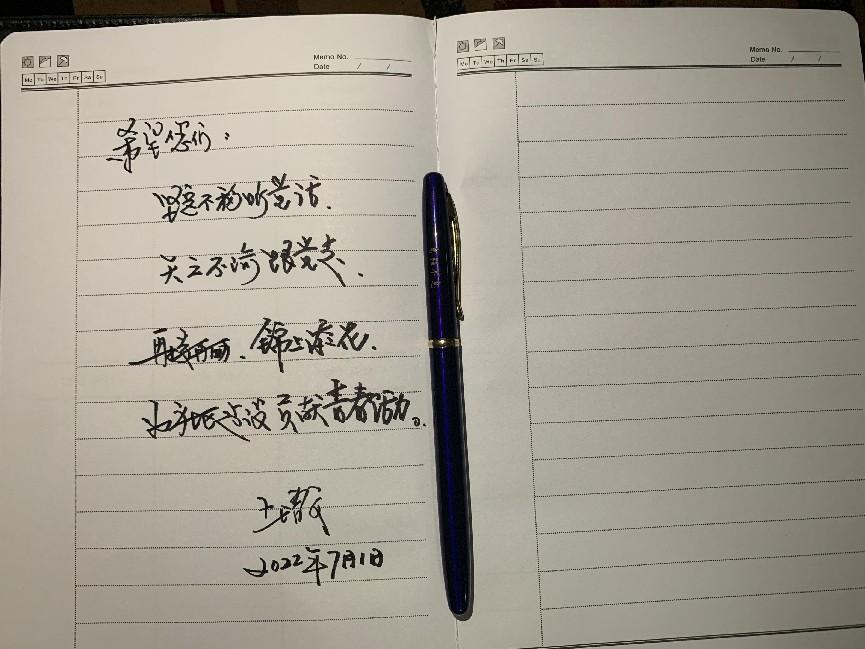 Memo No.
Date / /
Mo Tu We Th Fr Sa Su
希望您们：
坚定不移听党话.
矢志不渝跟党走、
再接再厉、锦上添花.
为 建设贡献青春活力。
2022年7月1日
Memo No.
Date / /
Mo Tu We Th Fr Sa Su